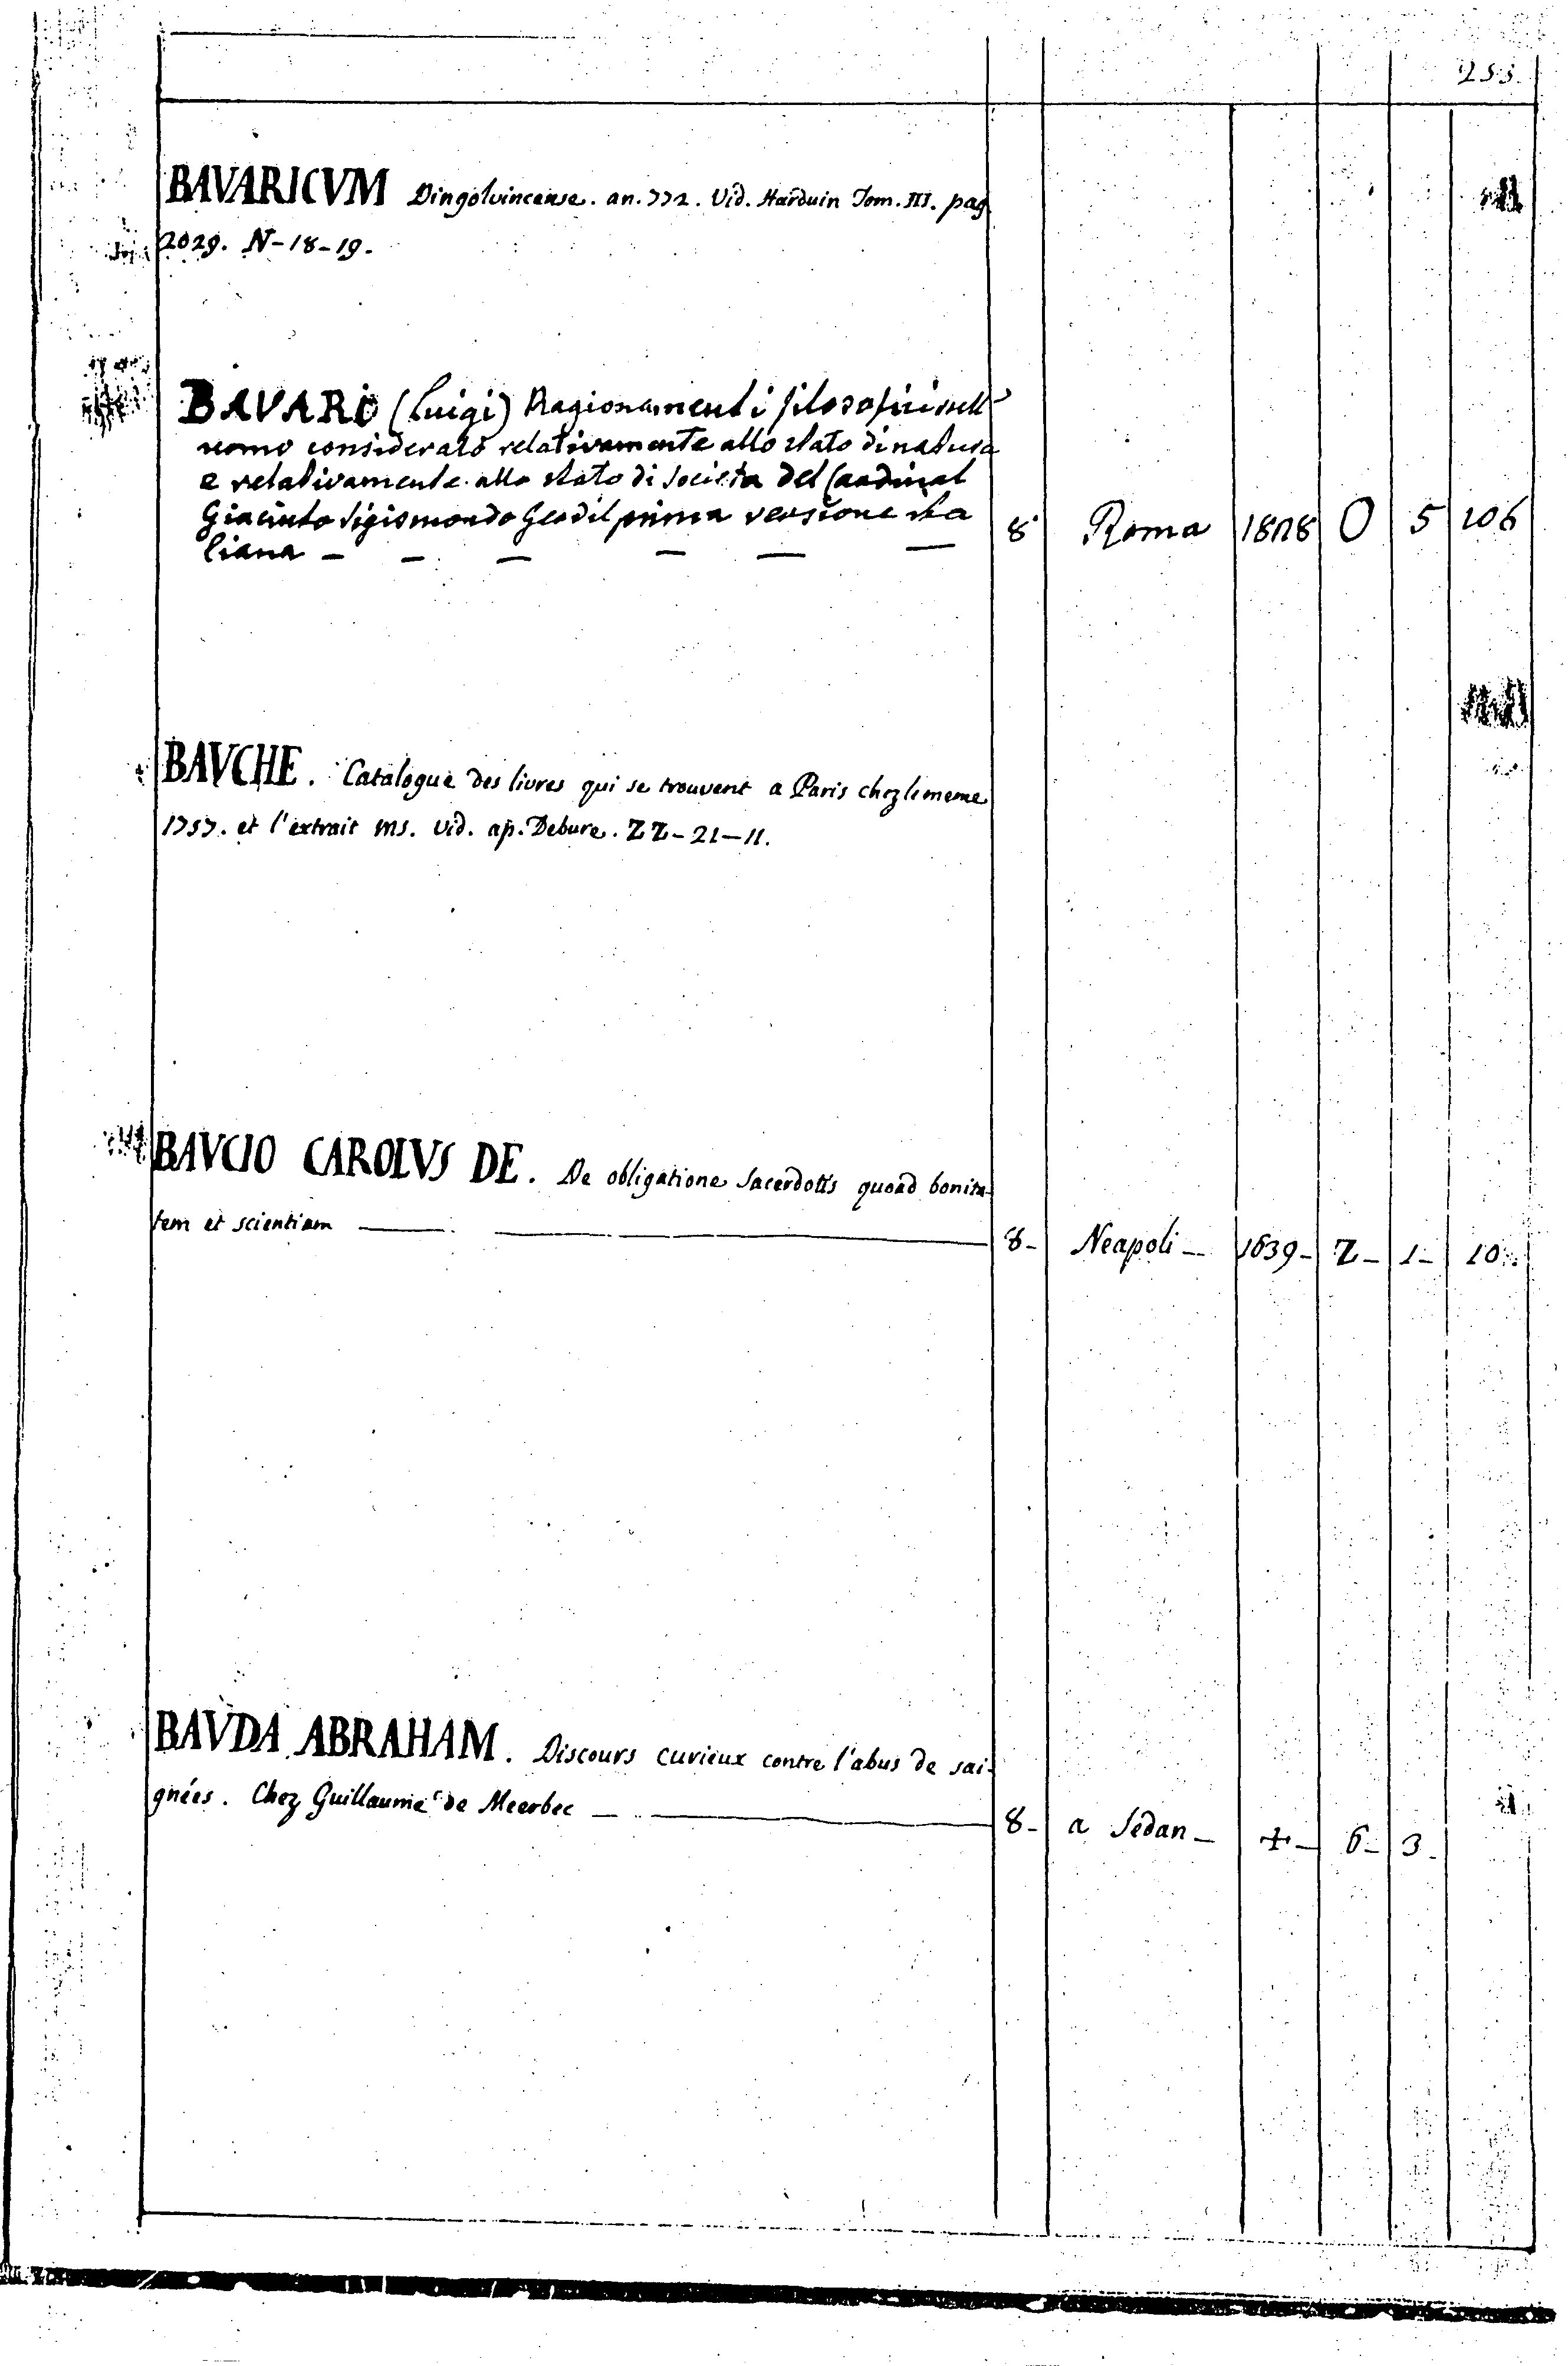 255.
BAVARICVM Dingolvincense. an. 772. Vid. Harduin Tom. III. pag
2029. N-18-19-
BAVARO (Luigi) Ragionamenti filosofici sull'
uomo considerato relativamente allo stato di natura
e relativamente allo stato di Societa del Cardinal
Giacinto Sigismondo Gerdil prima versione ita
liana — — — — — — 8° Roma 1828 O 5 106
BAVCHE. Catalogue des livres qui se trouvent a Paris chez le meme
1757. et l'extrait ms. Vid. ap. Debure. ZZ-21-11.
BAVCIO CAROLVS DE. De obligatione Sacerdotis quoad bonita-
tem et scientiam — 8- Neapoli- 1639- Z- 1- 10.
BAVDA ABRAHAM. Discours curieux contre l'abus de sai-
gnées. Chez Guillaume de Meerbec — 8- a Sedan- +- 6- 3-